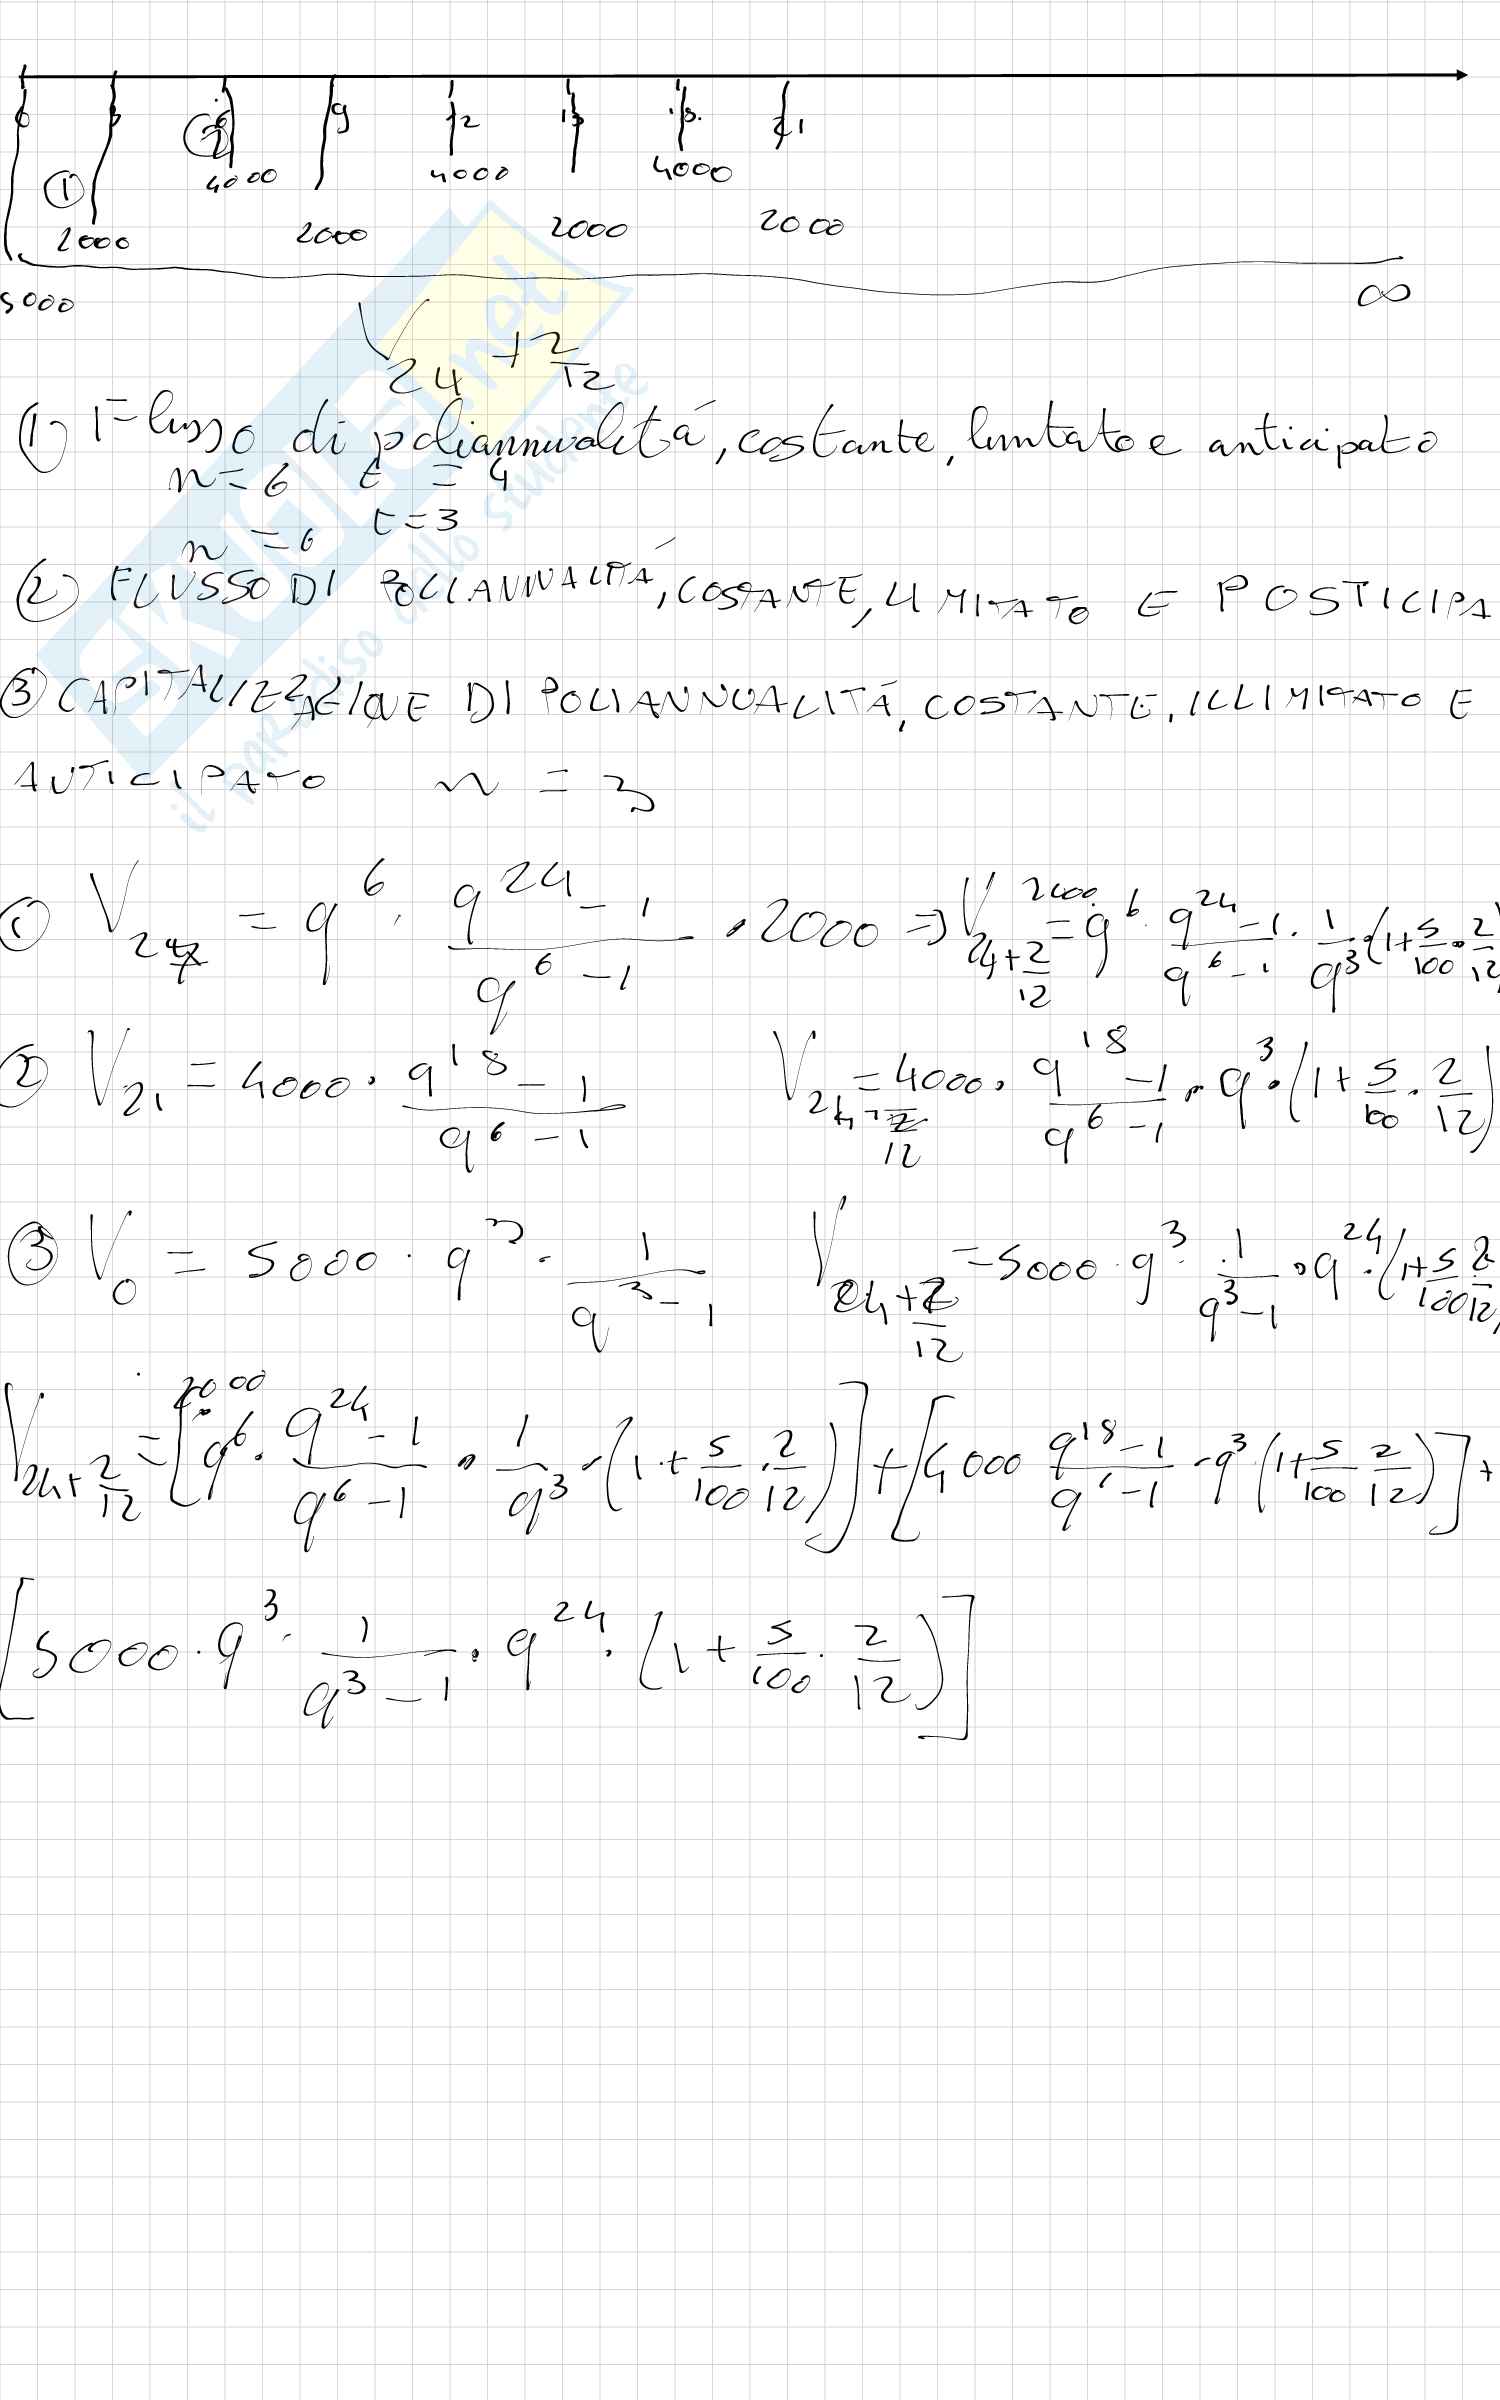 0 3 6 9 12 15 18 21
① ②
4000 4000 4000
2000 2000 2000 2000
5000 ∞
24 + 2/12
① Flusso di poliannualitá, costante, limitato e anticipato
n = 6 t = 4
n = 6 t = 3
② FLUSSO DI POLIANNUALITÁ, COSTANTE, LIMITATO E POSTICIPA
③ CAPITALIZZAZIONE DI POLIANNUALITÁ, COSTANTE, ILLIMITATO E
ANTICIPATO n = 3
① V₂₇ = q⁶ · (q²⁴ - 1)/(q⁶ - 1) · 2000 ⇒ V_(24+2/12) = 2000 · q⁶ · (q²⁴ - 1)/(q⁶ - 1) · 1/q³ · (1 + 5/100 · 2/12)
② V₂₁ = 4000 · (q¹⁸ - 1)/(q⁶ - 1) V_(24+2/12) = 4000 · (q¹⁸ - 1)/(q⁶ - 1) · q³ · (1 + 5/100 · 2/12)
③ V₀ = 5000 · q³ · 1/(q³ - 1) V_(24+2/12) = 5000 · q³ · 1/(q³ - 1) · q²⁴ · (1 + 5/100 2/12)
V_(24+2/12) = [2000 · q⁶ · (q²⁴ - 1)/(q⁶ - 1) · 1/q³ · (1 + 5/100 · 2/12)] + [4000 (q¹⁸ - 1)/(q⁶ - 1) · q³ (1 + 5/100 2/12)] +
[5000 · q³ · 1/(q³ - 1) · q²⁴ · (1 + 5/100 · 2/12)]
SKUOLA.net
il paradiso dello studente